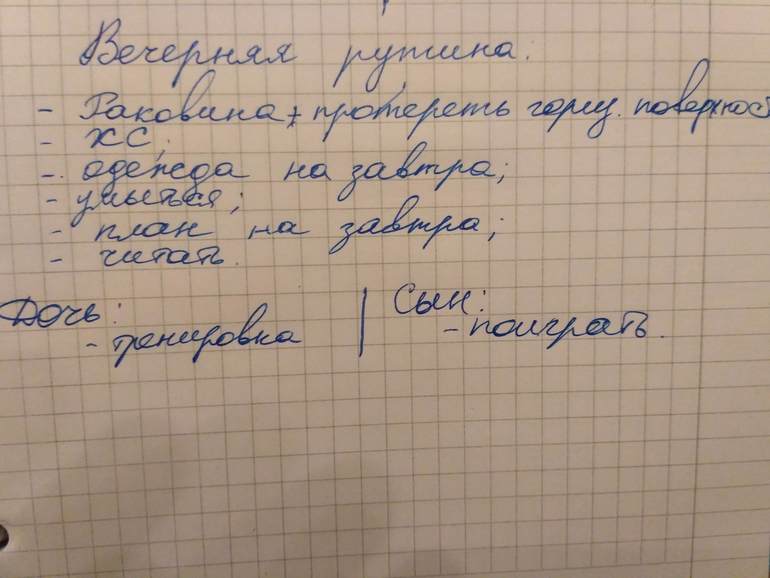 Вечерняя рутина.
- Раковина + протереть гориз. поверхност
- ХС;
- одежда на завтра;
- умыться;
- план на завтра;
- читать.
Дочь: | Сын:
- тренировка | - поиграть.